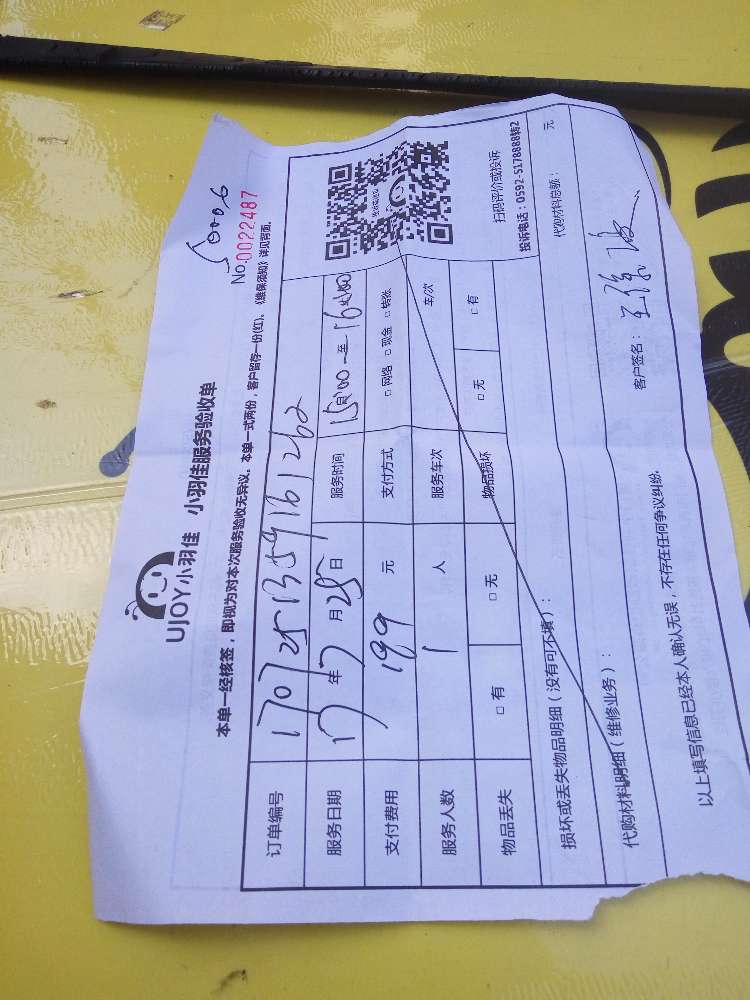 50006
NO.0022487
UJOY小羽佳 小羽佳服务验收单
本单一经核签，即视为对本次服务验收无异议。本单一式两份，客户留存一份(红)。《维保须知》详见背面。
订单编号 1707251359161262
服务日期 17年7月25日 服务时间 15:00 至 16:00
支付费用 199 元 支付方式 □网络 □现金 □转账
服务人数 1 人 服务车次 车/次
物品丢失 □有 □无 物品损坏 □无 □有
扫码评价或投诉
投诉电话：0592-5178888转2
损坏或丢失物品明细（没有可不填）：
代购材料明细（维修业务）： 代购材料总额： 元
以上填写信息已经本人确认无误，不存在任何争议纠纷. 客户签名：